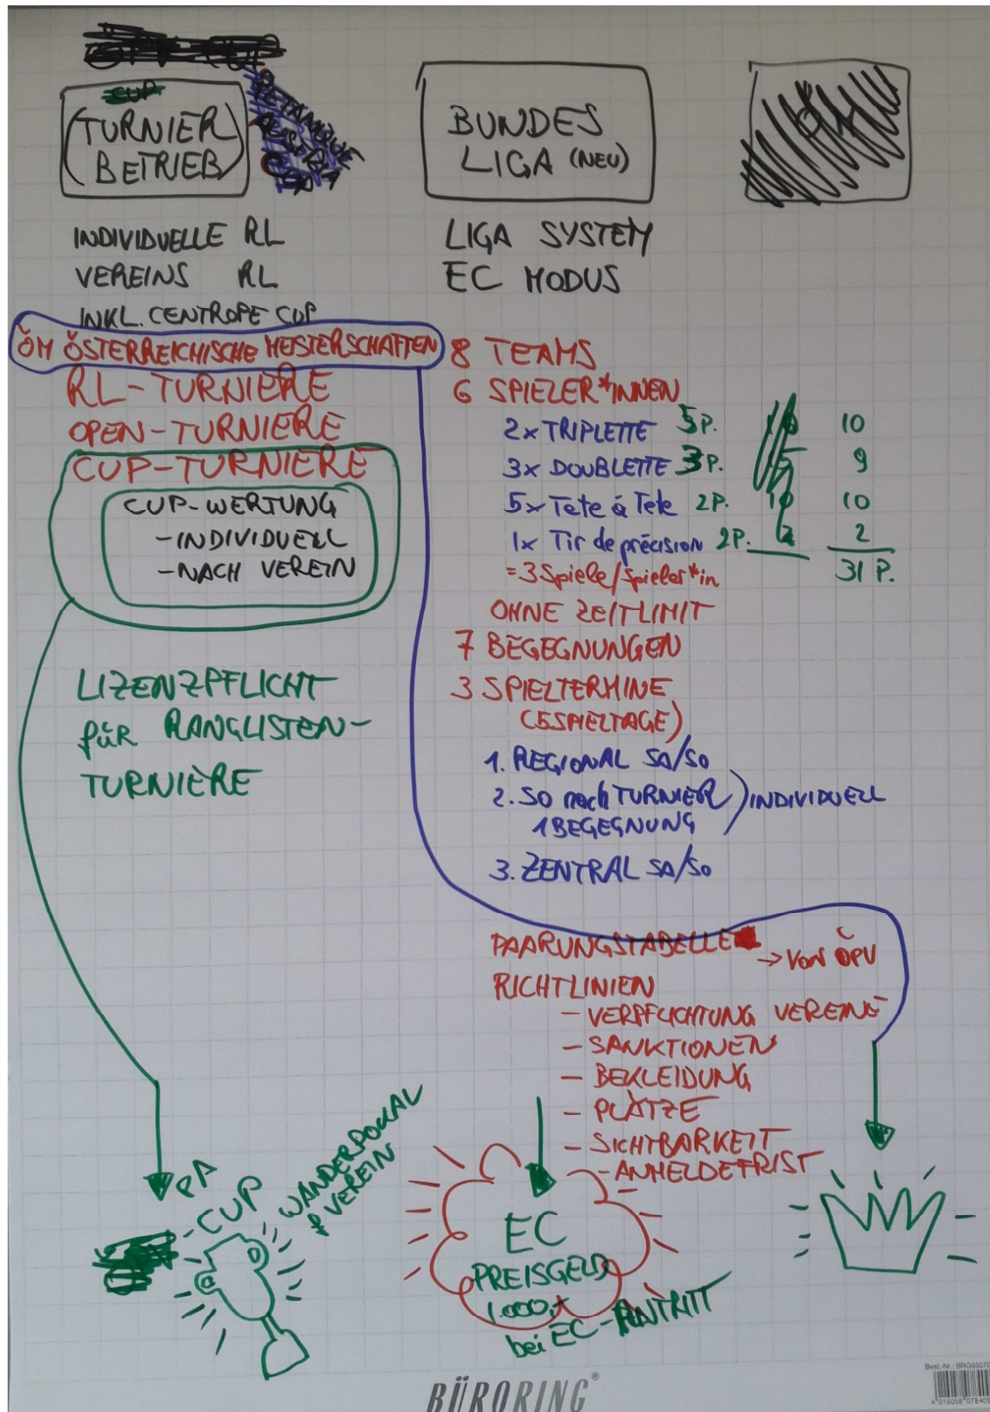 CUP
(TURNIER
BETRIEB)
PETANQUE
INDIVIDUELLE RL
VEREINS RL
INKL. CENTROPE CUP
ÖM ÖSTERREICHISCHE MEISTERSCHAFTEN
RL-TURNIERE
OPEN-TURNIERE
CUP-TURNIERE
CUP-WERTUNG
-INDIVIDUELL
-NACH VEREIN
LIZENZPFLICHT
für RANGLISTEN-
TURNIERE
PA
CUP
WANDERPOKAL
f VEREIN
BUNDES
LIGA (NEU)
LIGA SYSTEM
EC MODUS
8 TEAMS
6 SPIELER*INNEN
2x TRIPLETTE 5P. 10
3x DOUBLETTE 3P. 9
5x Tete á Tete 2P. 10
1x Tir de précision 2P. 2
=3 Spiele/Spieler*in 31 P.
OHNE ZEITLIMIT
7 BEGEGNUNGEN
3 SPIELTERMINE
(5 SPIELTAGE)
1. REGIONAL SA/SO
2. SO nach TURNIER
1 BEGEGNUNG
INDIVIDUELL
3. ZENTRAL SA/SO
PAARUNGSTABELLE
→ VON ÖPV
RICHTLINIEN
- VERPFLICHTUNG VEREINE
- SANKTIONEN
- BEKLEIDUNG
- PLÄTZE
- SICHTBARKEIT
- ANMELDEFRIST
EC
PREISGELD
1.000,-
bei EC-ANTRITT
BÜRORING®
Best.-Nr.: BRG65070